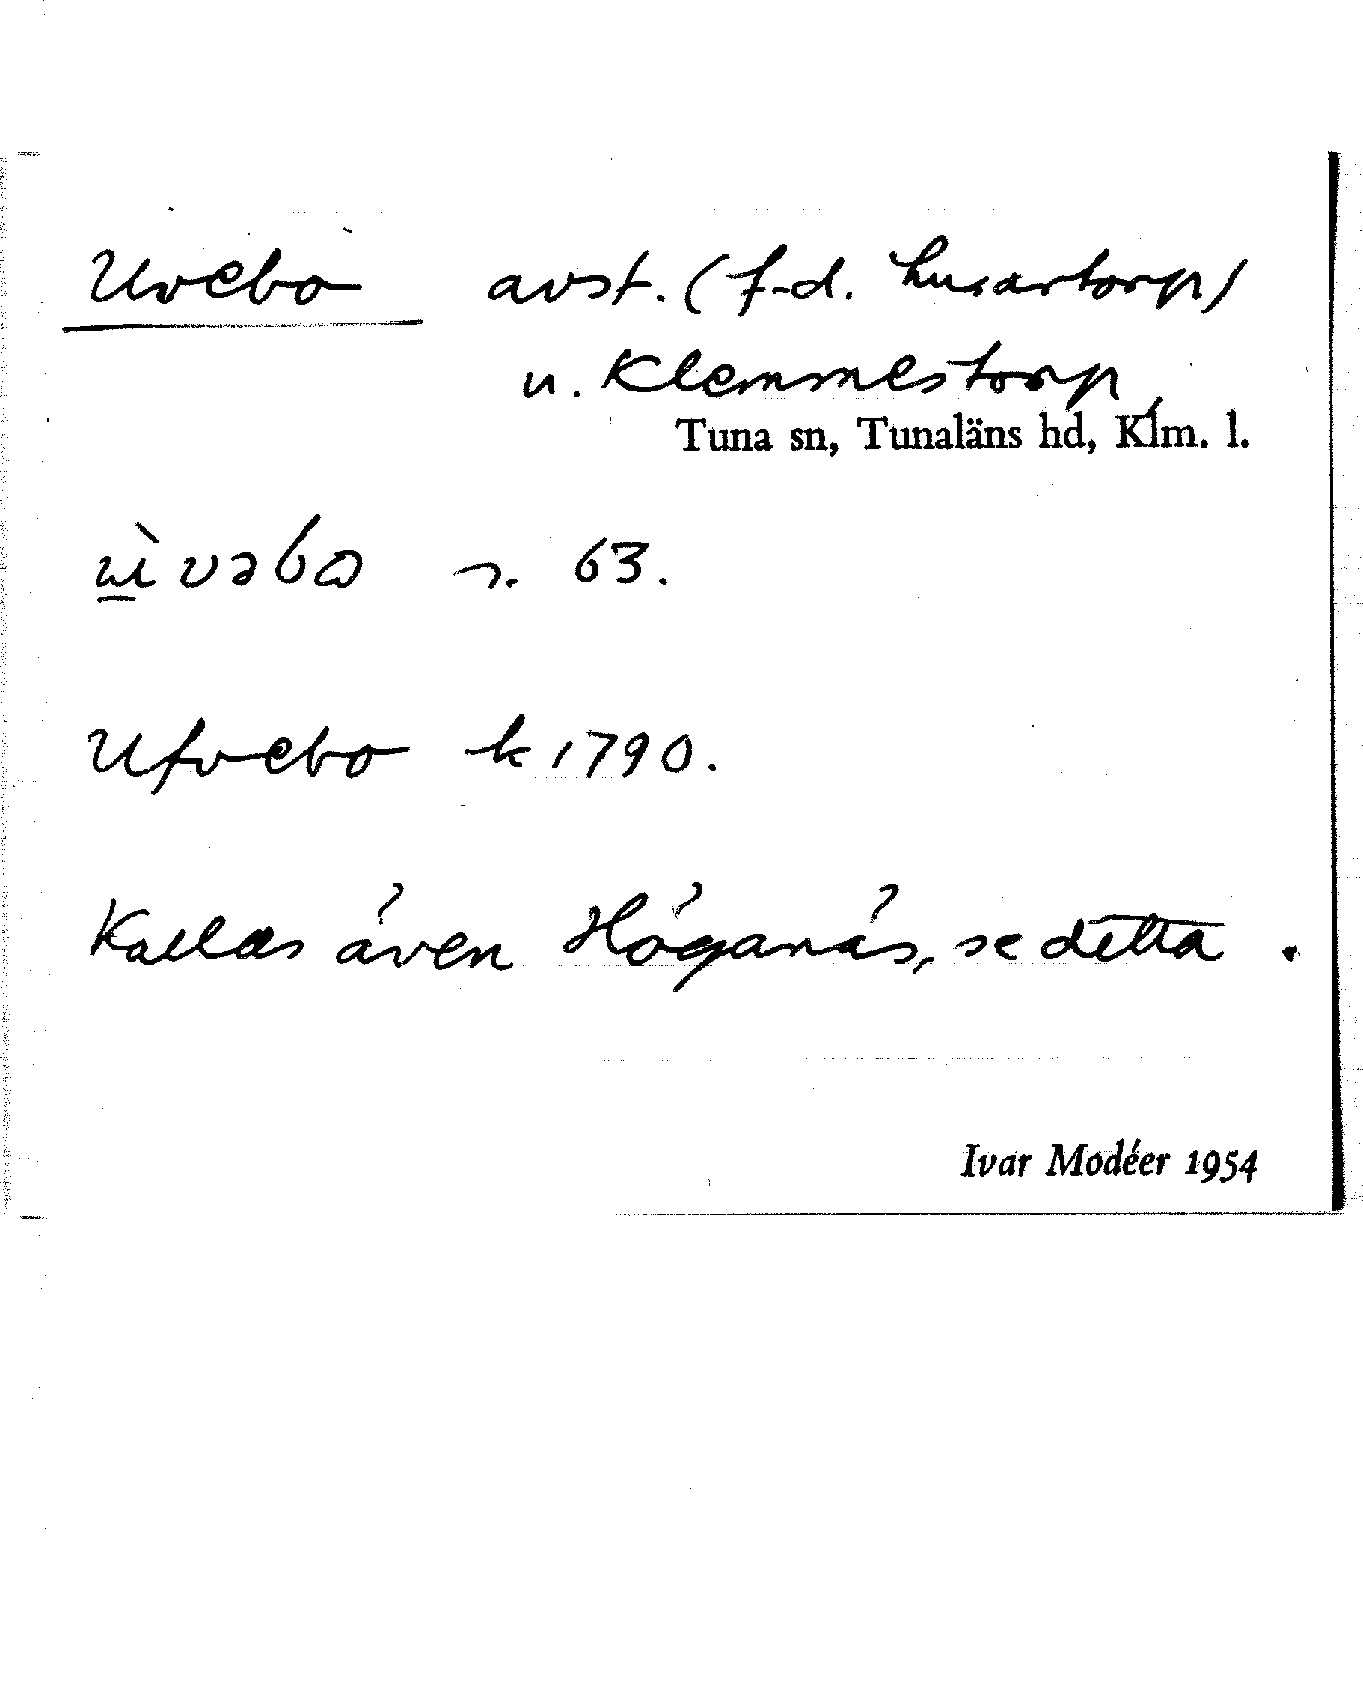 Uvebo avst. (f.d. husartorp)
u. Klemmestorp,
Tuna sn, Tunaläns hd, Klm. l.
ὠvəbo r. 63.
Ufvebo k 1790.
Kallas även Höganäs, se detta.
Ivar Modéer 1954